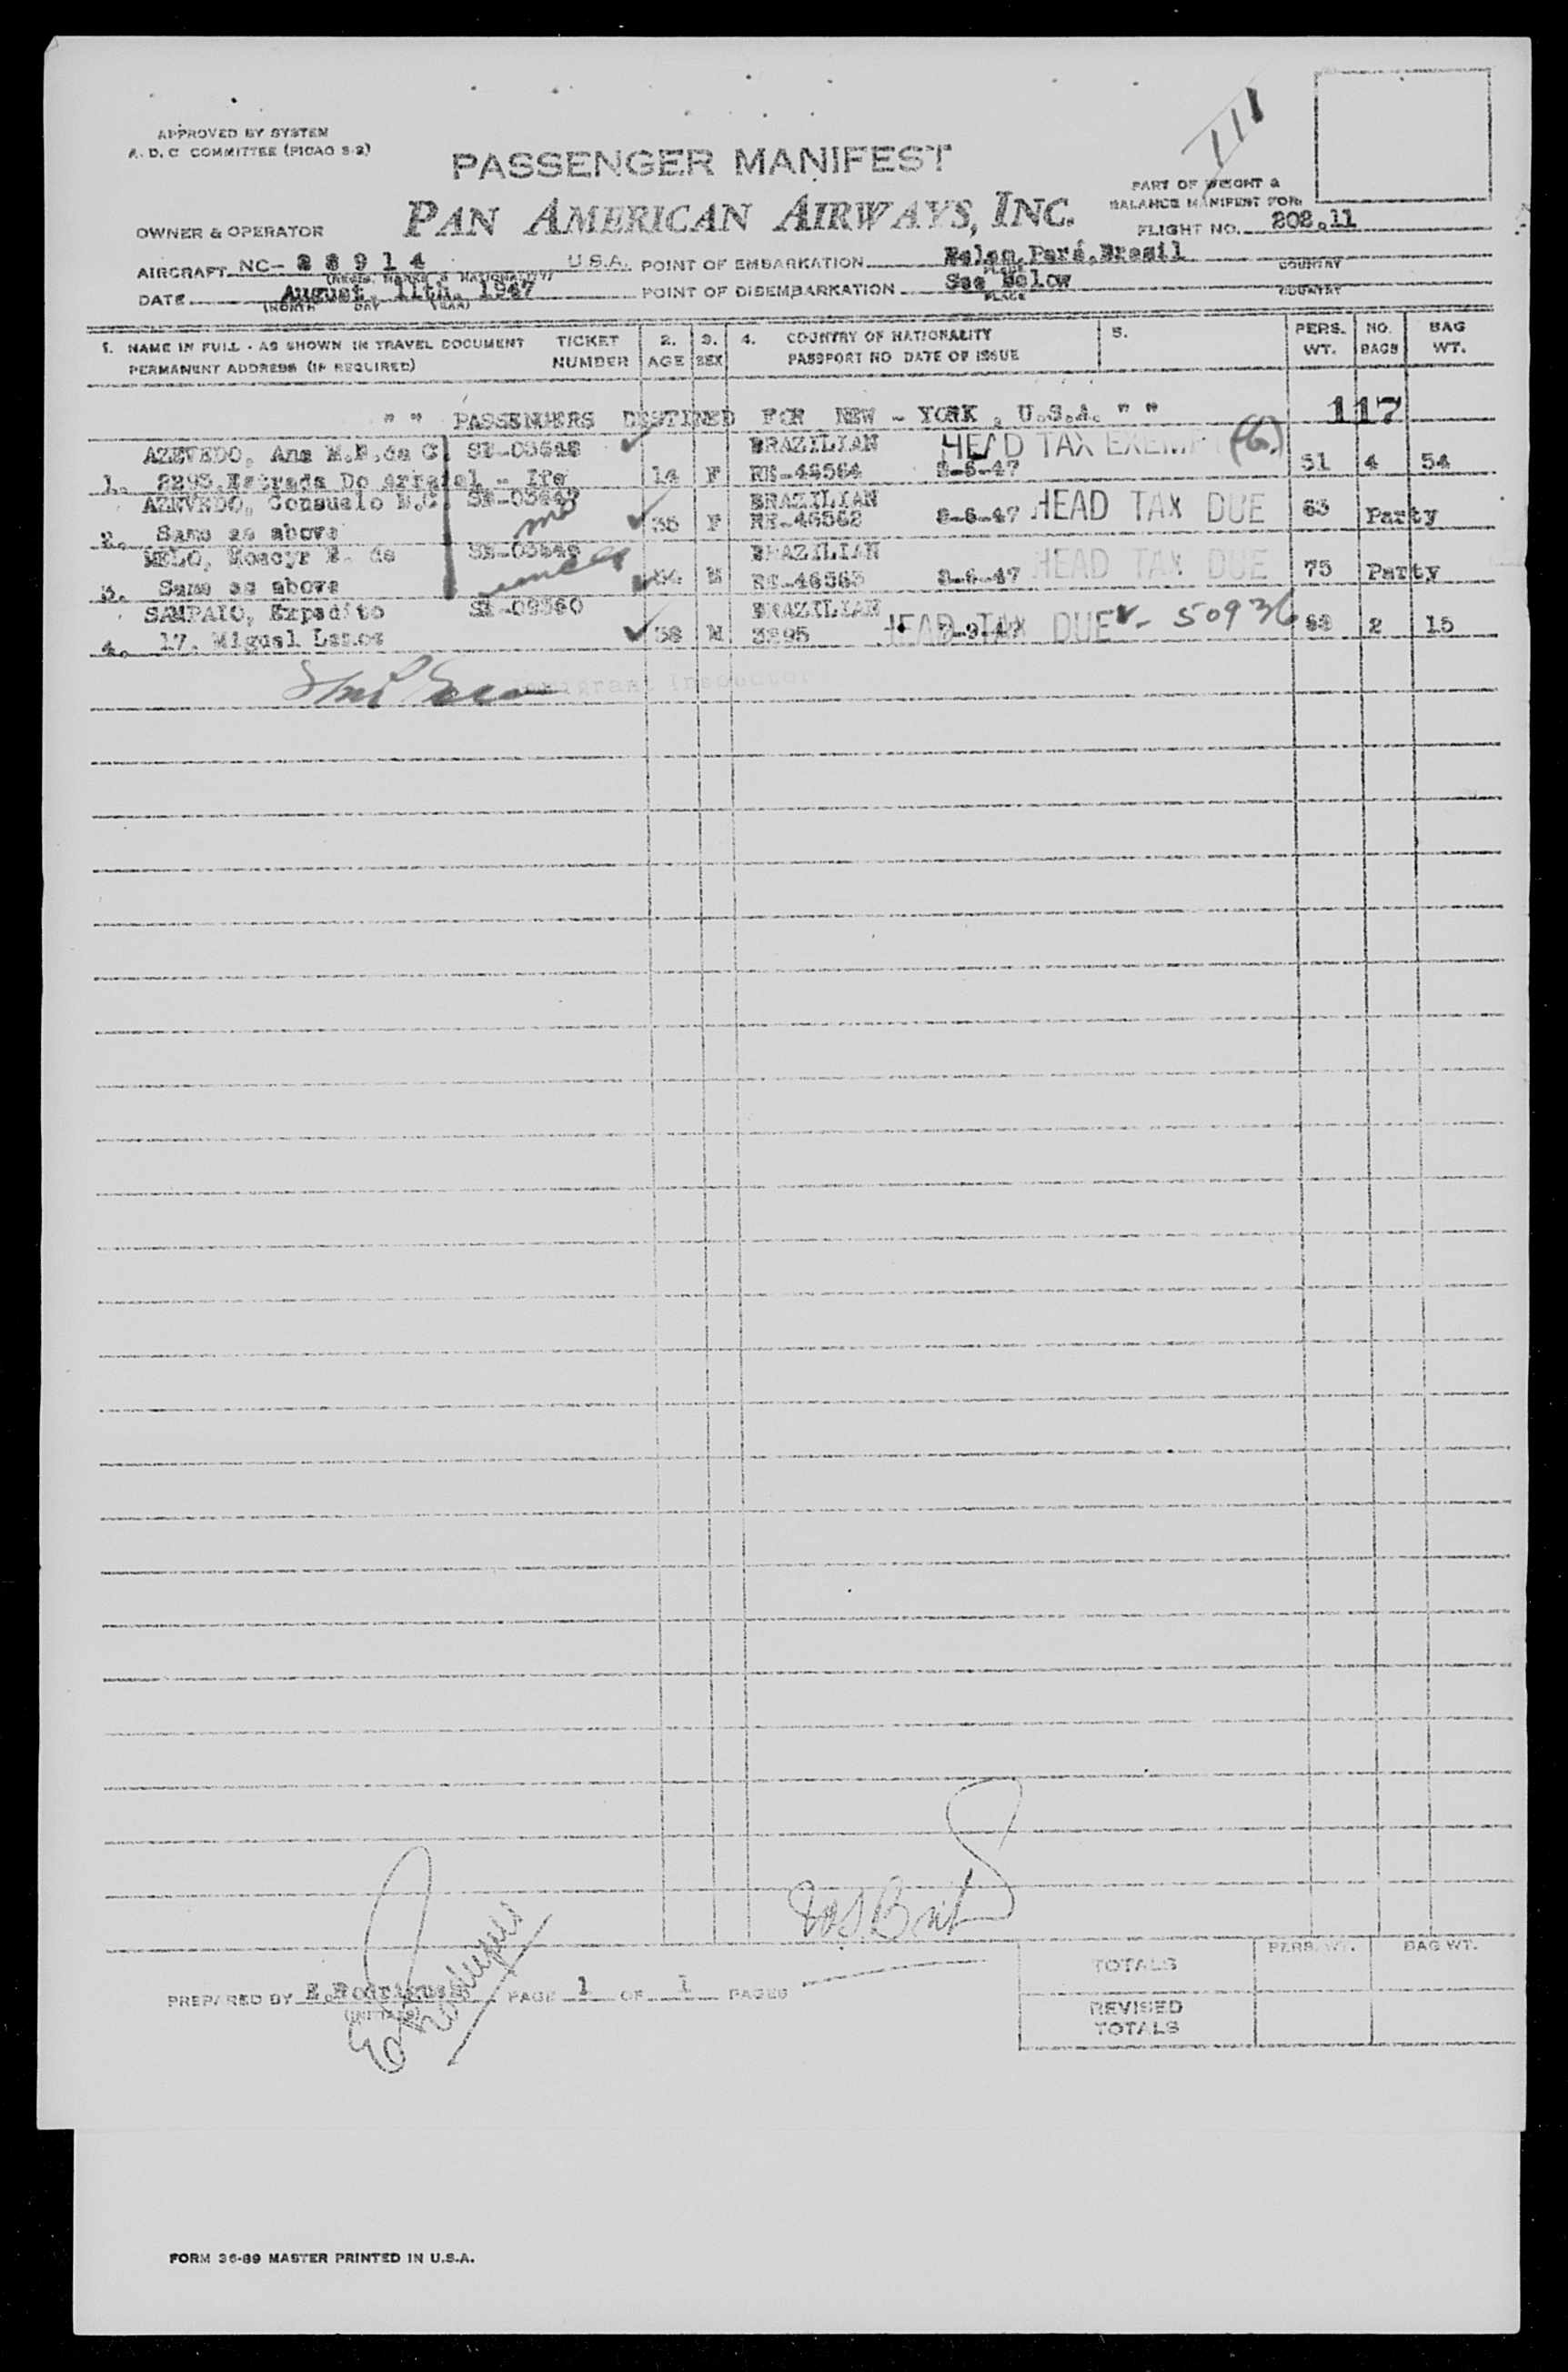 APPROVED BY SYSTEM
A. D. C COMMITTEE (PICAO S-2)
111
PASSENGER MANIFEST
PAN AMERICAN AIRWAYS, INC.
PART OF WEIGHT &
BALANCE MANIFEST FOR:
FLIGHT NO. 202.11
OWNER & OPERATOR
AIRCRAFT NC- 88914 U.S.A. POINT OF EMBARKATION Belem, Pará, Brasil
(REGIS. MARKS & NATIONALITY) PLACE COUNTRY
DATE August 11th. 1947 POINT OF DISEMBARKATION See Below
(MONTH DAY YEAR) PLACE COUNTRY
1. NAME IN FULL - AS SHOWN IN TRAVEL DOCUMENT TICKET 2. 3. 4. COUNTRY OF NATIONALITY 5. PERS. NO. BAG
PERMANENT ADDRESS (IF REQUIRED) NUMBER AGE SEX PASSPORT NO DATE OF ISSUE WT. BAGS WT.
" " PASSENGERS DESTINED FOR NEW - YORK , U.S.A. " " 117
AZEVEDO, Ana M.M.da C. BRAZILIAN HEAD TAX EXEMPT (6)
1. Estrada Do Arraial - 14 F RR-46564 8-6-47 51 4 54
AZEVEDO, Consuelo M.C. BRAZILIAN HEAD TAX DUE
2. Same as above F RR-46562 8-6-47 63 Party
MELO, Moacyr de BRAZILIAN HEAD TAX DUE
3. Same as above M 8-6-47 75 Party
SAMPAIO, Expedito BRAZILIAN HEAD TAX DUE v- 50936
4. 17, Miguel Lemos 38 M 3295 2 15
Immigrant Inspector
PREPARED BY E.Rodrigues PAGE 1 OF 1 PAGES
(INITIALS)
E. Rodrigues
TOTALS PERS. WT. BAG WT.
REVISED
TOTALS
FORM 36-89 MASTER PRINTED IN U.S.A.